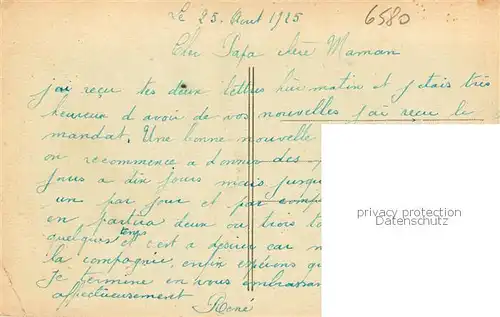 Le 25. Aout 1925
6580
Cher Papa chère Maman
j'ai reçu tes deux lettres hier matin et j'etais très
heureux d avoir de vos nouvelles j'ai reçu le
mandat. Une bonne nouvelle
on recommence a donner des
jours mais jusqu
un par jour et par
en partira deux ou trois
quelques temps et c'est a desirer car
la compagnie, enfin espérons
Je termine en vous embrassan
affectueusement René
privacy protection
Datenschutz